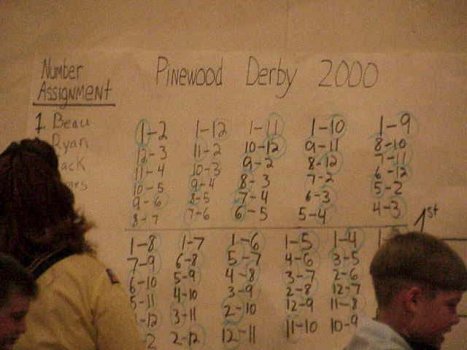 Pinewood Derby 2000
Number
Assignment
1 Beau
Ryan
1-2 1-12 1-11 1-10 1-9
12-3 11-2 10-12 9-11 8-10
11-4 10-3 9-2 8-12 7-11
10-5 9-4 8-3 7-2 6-12
9-6 8-5 7-4 6-3 5-2
8-7 7-6 6-5 5-4 4-3
1st
1-8 1-7 1-6 1-5 1-4
7-9 6-8 5-7 4-6 3-5
6-10 5-9 4-8 3-7 2-6
5-11 4-10 3-9 2-8 12-7
-12 3-11 2-10 12-9 11-8
2 2-12 12-11 11-10 10-9